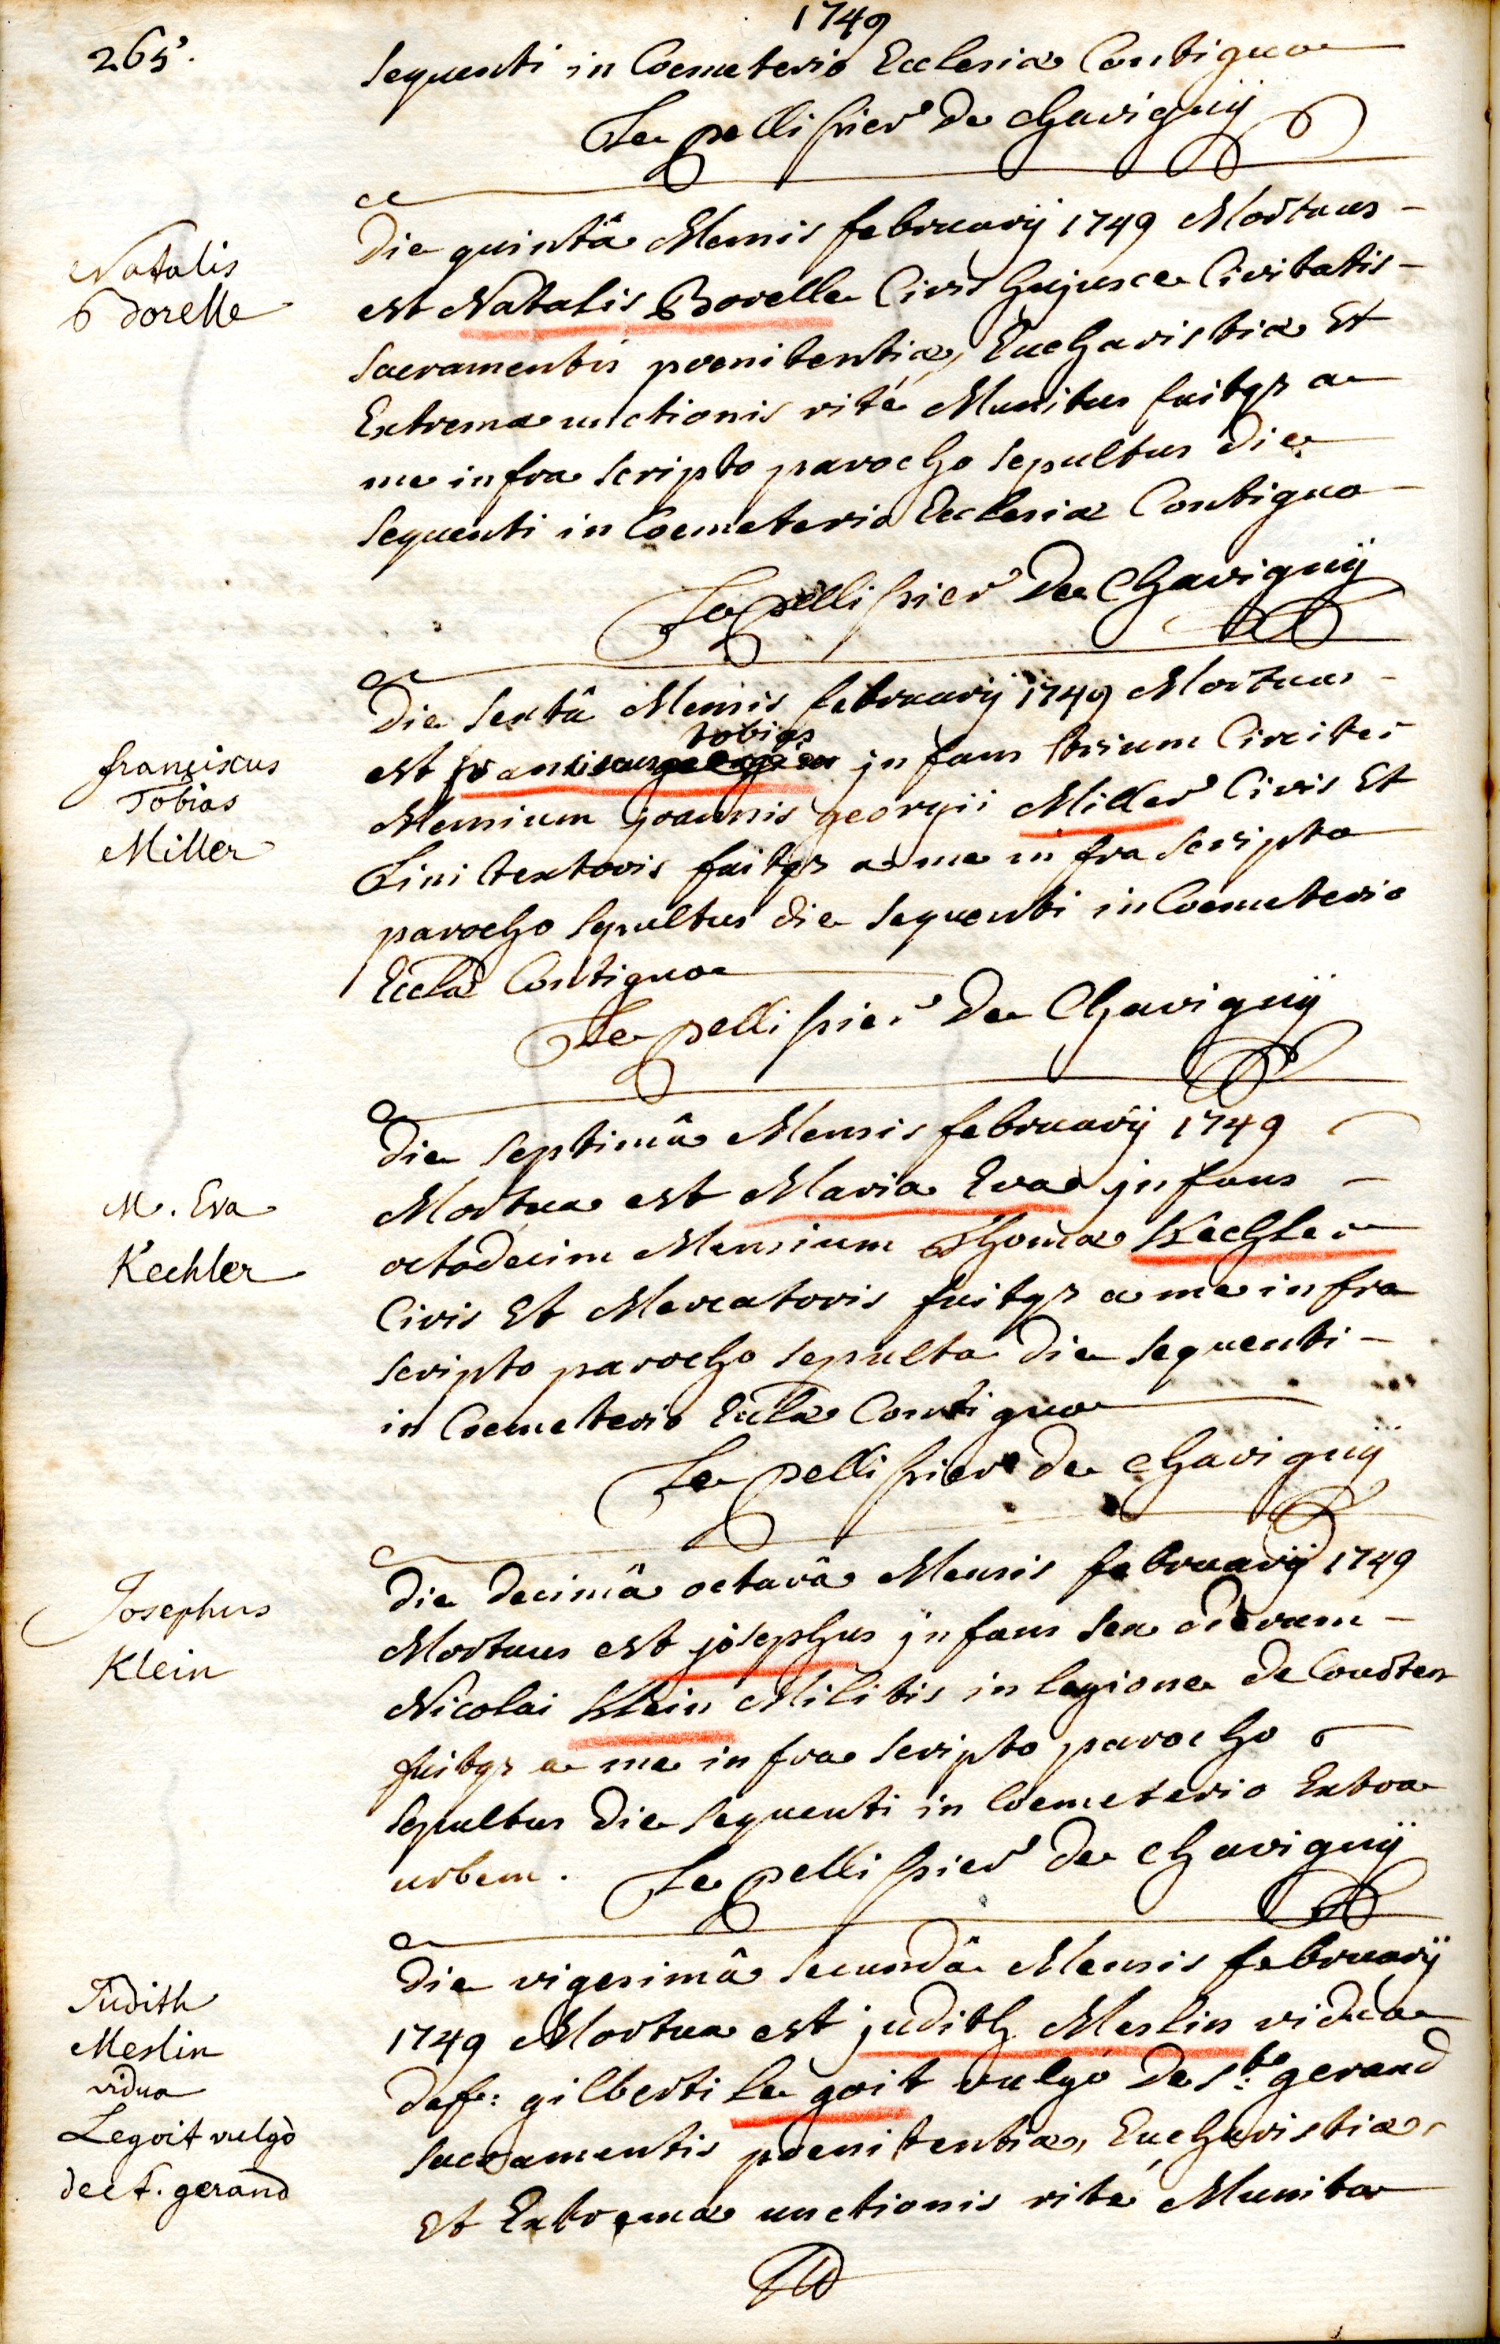 1749
265.
sequenti in Coemeterio Ecclesiæ Contiguo
Le pellissier De chavignÿ
Natalis
Borelle
Die quintâ Mensis februarÿ 1749 Mortuus
est Natalis Borelle Civis hujusce Civitatis
sacramentis poenitentiæ, Eucharistiæ Et
Extremæ unctionis rité Munitus fuitqz a
me infra scripto parocho sepultus die
sequenti in Coemeterio Ecclesiæ Contiguo
Le pellissier De Chavignÿ
franciscus
Tobias
Miller
Die sextâ Mensis februarÿ 1749 Mortuus
tobias
est franciscus jnfans trium Circiter
Mensium joannis georgii Miller Civis Et
Linitextoris fuitqz a me infra scripto
parocho sepultus die sequenti in Coemeterio
Eccla Contiguo
Le pellissier De Chavignÿ
M. Eva
Kechler
Die septimâ Mensis februarÿ 1749
Mortua est Maria Eva jnfans
octodecim Mensium Thomæ Kechler
Civis Et Mercatoris fuitqz a me infra
scripto parocho sepulta die sequenti
in Coemeterio Eclæ Contiguo
Le pellissier de chavignÿ
Josephus
Klein
Die decimâ octavâ Mensis februarÿ 1749
Mortuus est josephus jnfans sex dierum
Nicolai Klein Militis in legione de
fuitqz a me infra scripto parocho
sepultus die sequenti in Coemeterio Extra
urbem. Le pellissier De chavignÿ
Judith
Meslin
vidua
Legoit vulgò
de St. gerand
Die vigesimâ secundâ Mensis februarÿ
1749 Mortua est judith Meslin vidua
def: gilberti Le goit vulgo De St: gerand
sacramentis poenitentiæ, Eucharistiæ,
Et Extremæ unctionis rité Munita